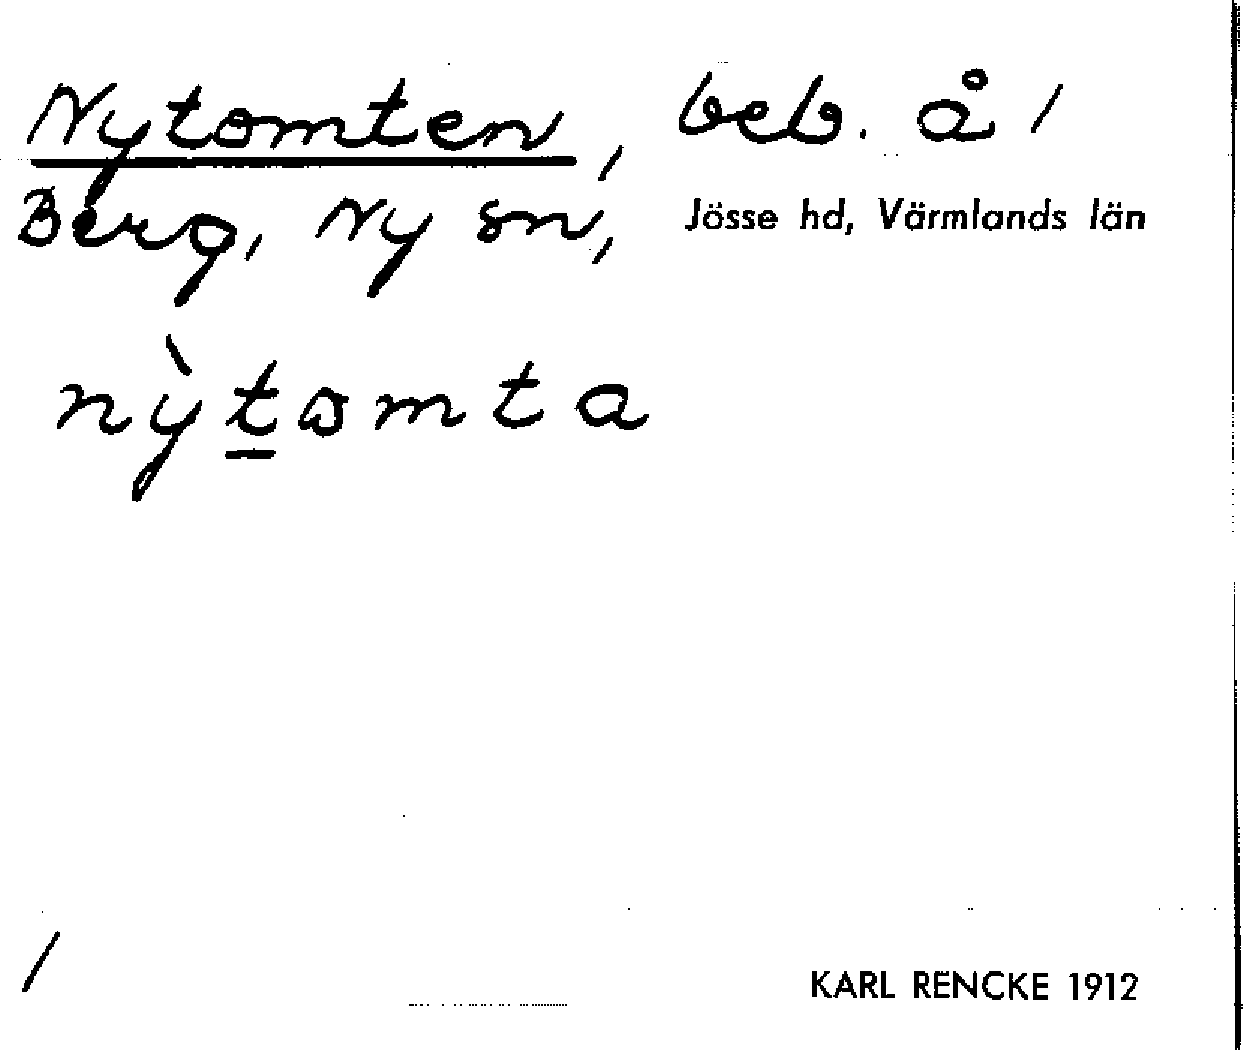 Nytomten, beb. å 1
Berg, Ny sn, Jösse hd, Värmlands län
nỳt̲ωmta
1
KARL RENCKE 1912